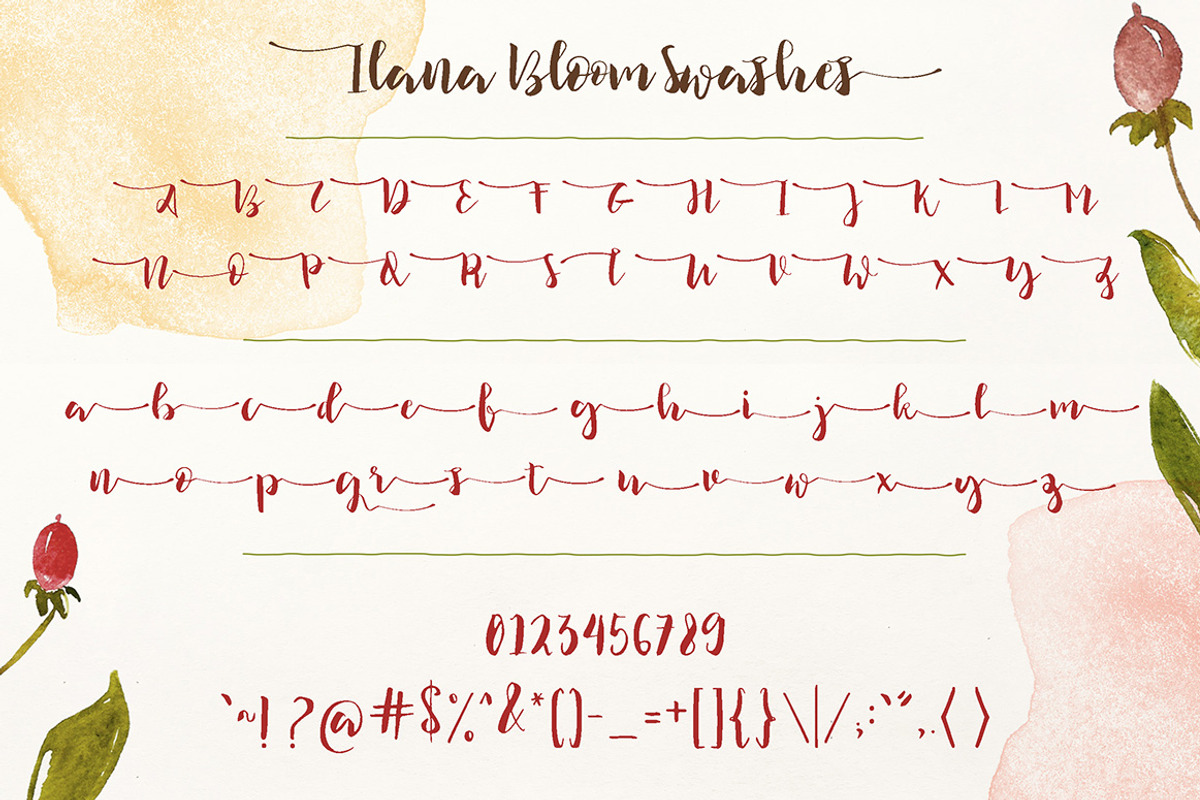 Ilana Bloom Swashes
A B C D E F G H I J K L M
N O P Q R S T U V W X Y Z
a b c d e f g h i j k l m
n o p q r s t u v w x y z
0123456789
`~!?@#$%^&*()-_=+[]{}\|/;:`",.<>